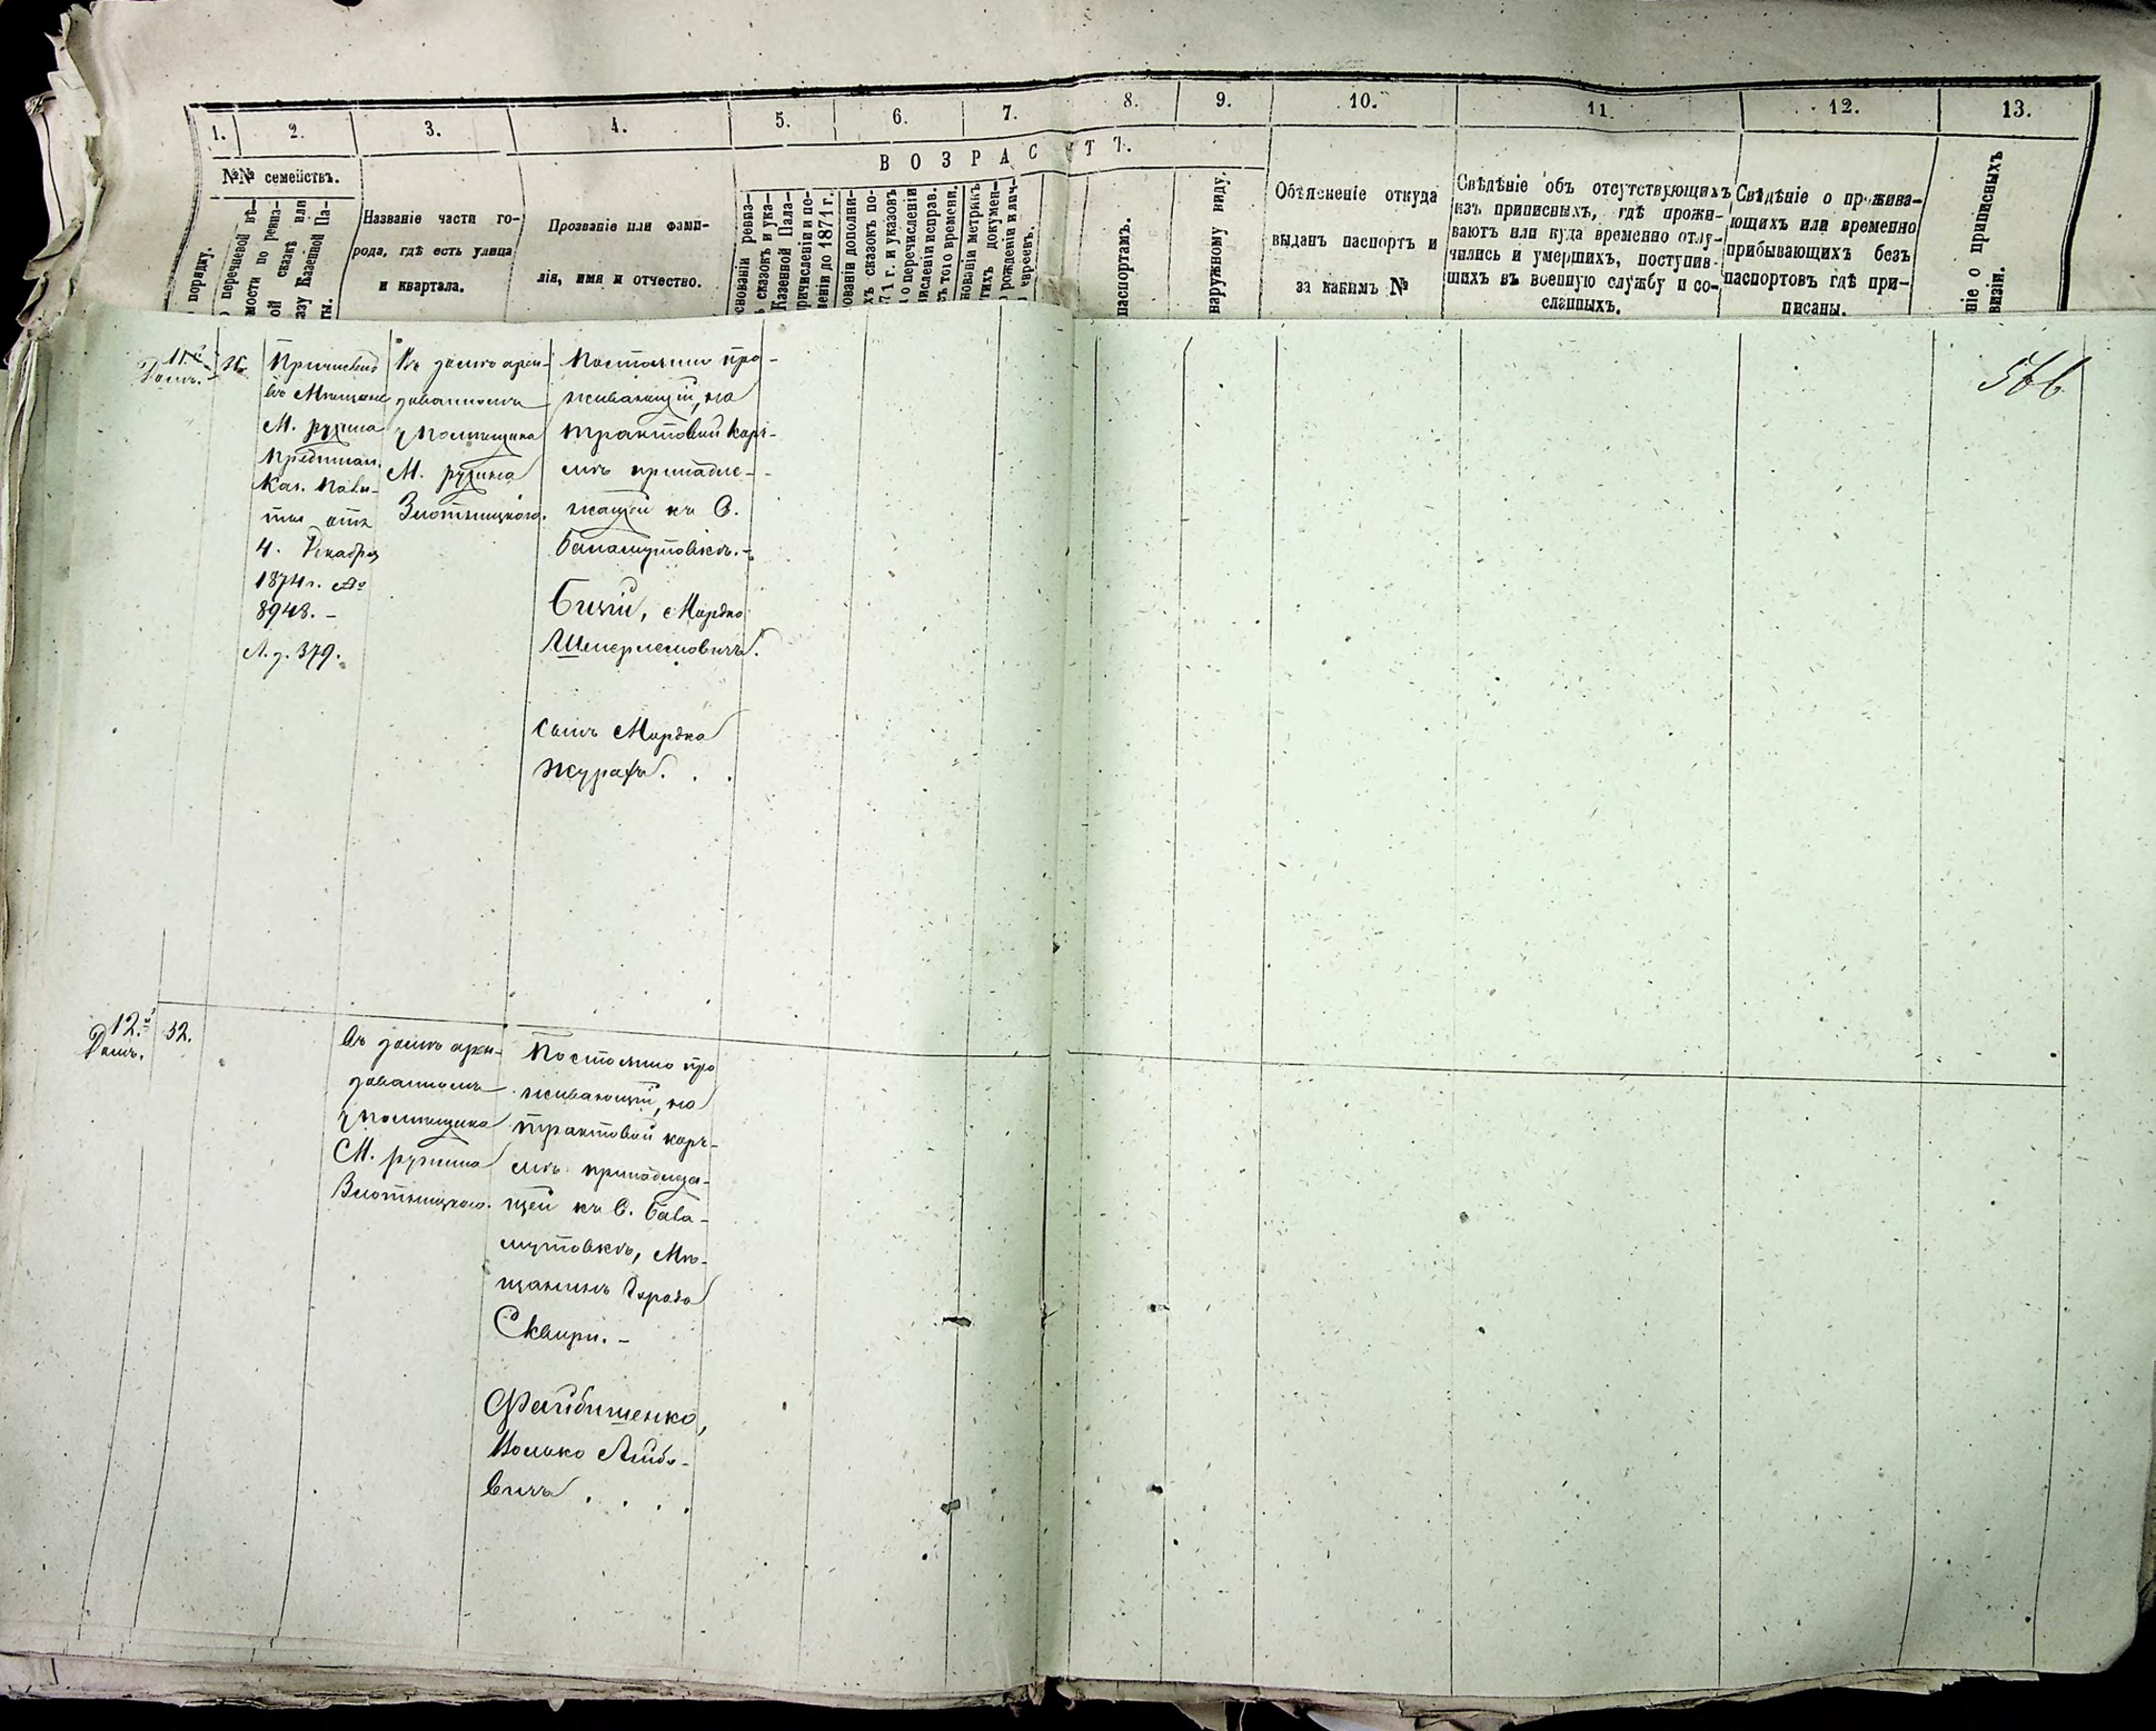 1. 2. 3. 4. 5. 6. 7. 8. 9. 10. 11. 12. 13.
ВОЗРАСТЪ.
№№ семействъ.
порядку.
перечневой вѣ-
мости по ревиз-
ой сказкѣ или
казу Казенной Па-
ты.
Названіе части го-
рода, гдѣ есть улица
и квартала.
Прозваніе или фами-
лія, имя и отчество.
снованіи ревиз-
ъ сказокъ и ука-
Казенной Пала-
ричисленіи и пе-
леніи до 1871 г.
ованіи дополни-
хъ сказокъ по-
71 г. и указовъ
о перечисленіи
исленіи исправ.
съ того времени.
нованіи метрикъ
гихъ докумен-
о рожденіи и лич-
евреевъ.
паспортамъ.
наружному виду.
Объясненіе откуда
выданъ паспортъ и
за какимъ №
Свѣдѣніе объ отсутствующихъ
изъ приписныхъ, гдѣ прожи-
ваютъ или куда временно отлу-
чились и умершихъ, поступив-
шихъ въ военную службу и со-
сланныхъ.
Свѣдѣніе о прожива-
ющихъ или временно
прибывающихъ безъ
паспортовъ гдѣ при-
писаны.
ніе о приписныхъ
визіи.
11.й
Домъ.
Причисленъ
въ Мещане
М. Ружина
Предписан.
Каз. Пала-
ты отъ
4. Декабря
1874 г. №
8948. -
Л. д. 379.
Въ домѣ арен-
дованномъ
у помѣщика
М. Ружина
Злотницкого.
Постоянно про-
живающій, на
трактовой корч-
мѣ принадле-
жащей къ С.
Баламутовкѣ. -
Мордко
Сынъ Мордка
566
12.й
Домъ.
32.
Въ домѣ арен-
дованномъ
у помѣщика
М. Ружина
Злотницкого.
Постоянно про
живающій, на
трактовой корч-
мѣ принадлежа-
щей къ С. Бала-
мутовкѣ, Мѣ-
щанинъ Города
Сквири. -
Файбишенко,
Волько Лейбо-
вичъ . . . .